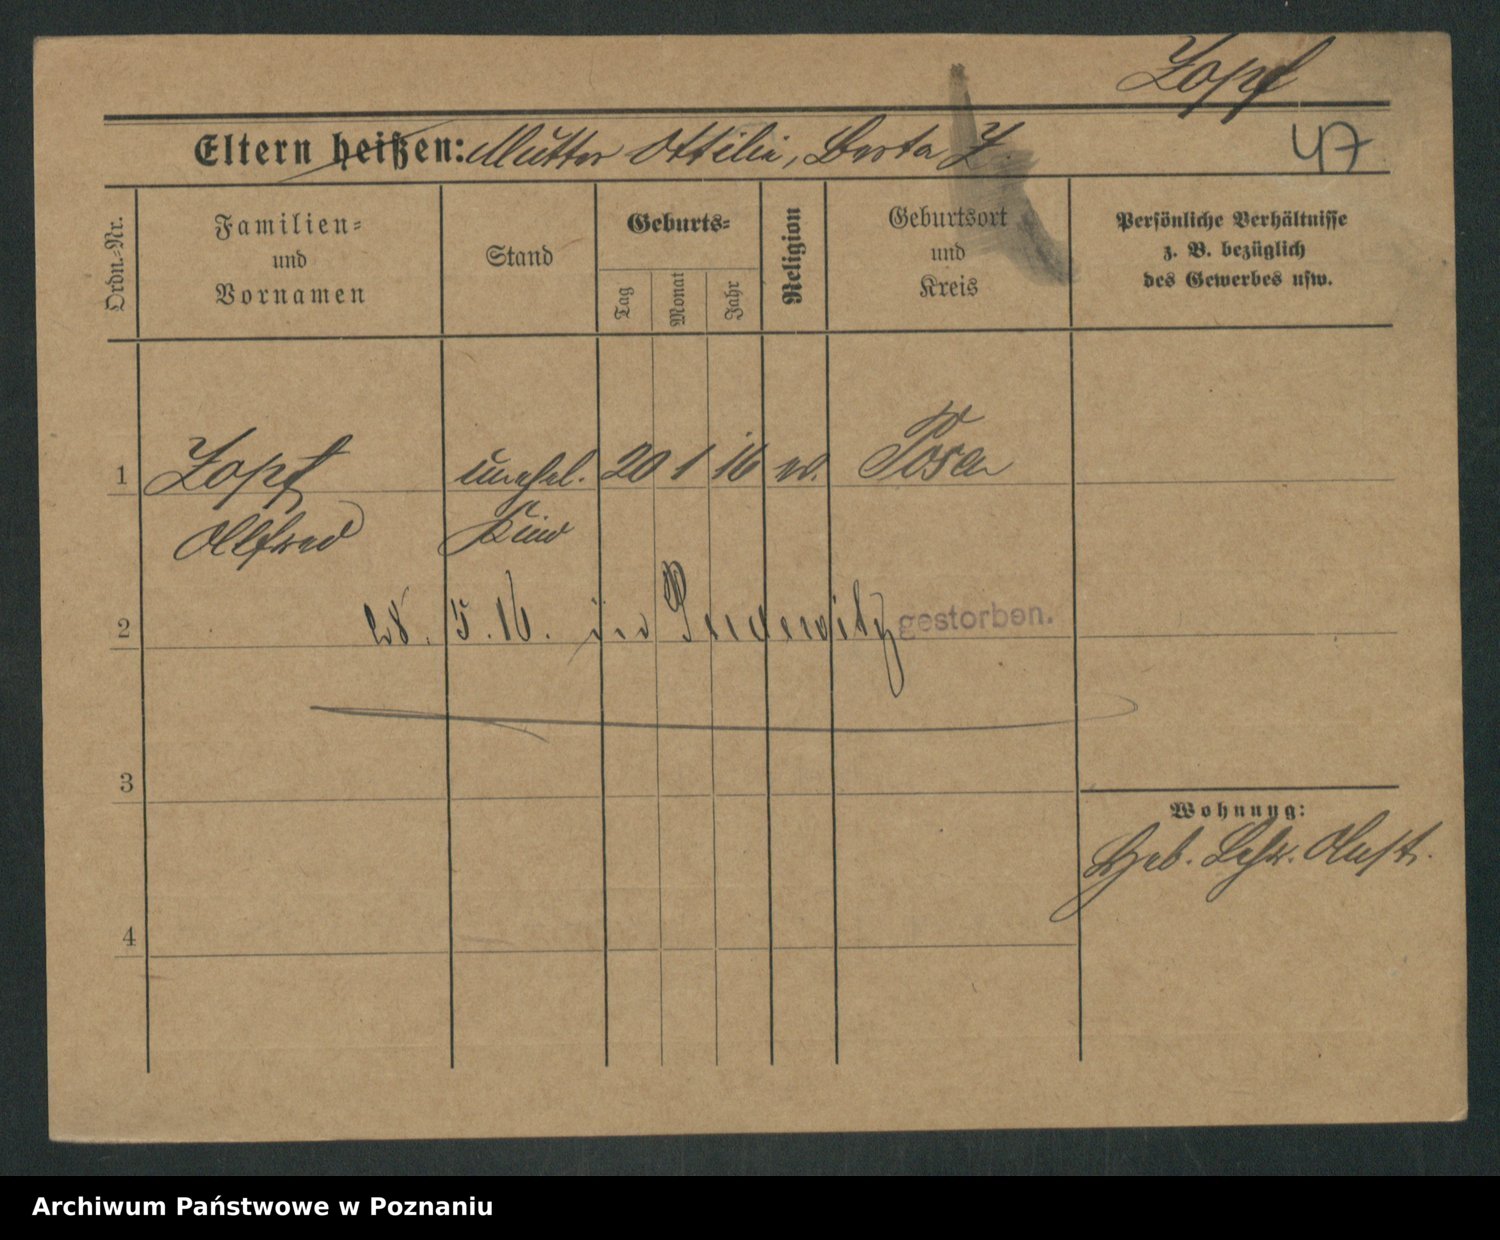 Zopf
Eltern heißen: Mutter Ottilie, Berta Z.
47
Ordn.-Nr.
Familien-
und
Vornamen
Stand
Geburts-
Tag
Monat
Jahr
Religion
Geburtsort
und
Kreis
Persönliche Verhältnisse
z. B. bezüglich
des Gewerbes usw.
1 Zopf unehel. 20 1 16 ev. Posen
Alfred Kind
2 28. 5. 16. in Pudewitz gestorben.
3
Wohnung:
Heb. Lehr. Anst.
4
Archiwum Państwowe w Poznaniu